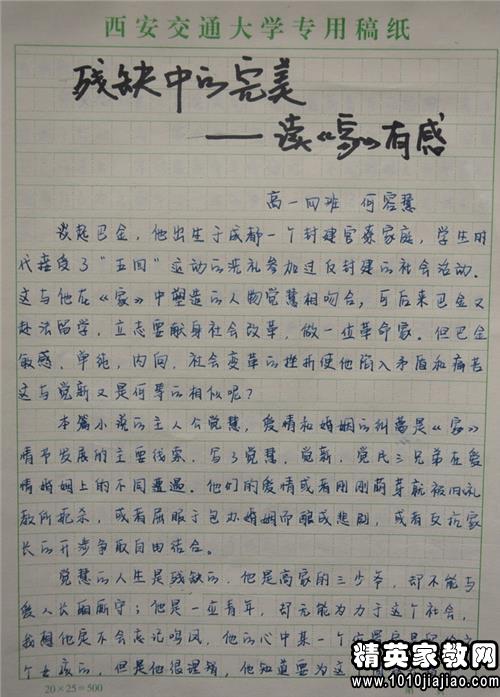 西安交通大学专用稿纸
残缺中的完美
——读《家》有感
高一四班 何容慧
谈起巴金，他出生于成都一个封建官僚家庭，学生时
代接受了"五四"运动的洗礼参加过反封建的社会活动．
这与他在《家》中塑造的人物觉慧相吻合，可后来巴金又
赴法留学，立志要献身社会改革，做一位革命家．但巴金
敏感、单纯，内向，社会变革的挫折使他陷入矛盾和痛苦
这与觉新又是何等的相似呢？
本篇小说的主人公觉慧，爱情和婚姻的纠葛是《家》
情节发展的主要线索，写了觉慧，觉新，觉民三兄弟在爱
情婚姻上的不同遭遇．他们的爱情或者刚刚萌芽就被旧礼
教所扼杀，或者屈服于包办婚姻而酿成悲剧，或者反抗家
长的开步争取自由结合。
觉慧的人生是残缺的．他是高家的三少爷，却不能与
爱人长厢厮守；他是一位青年，却无能为力于这个社会，
我想他是不会忘记鸣凤，他的心中某一个位置
个女孩的，但是他很理智，他知道要为这
20×25=500
精英家教网
www.1010jiajiao.com